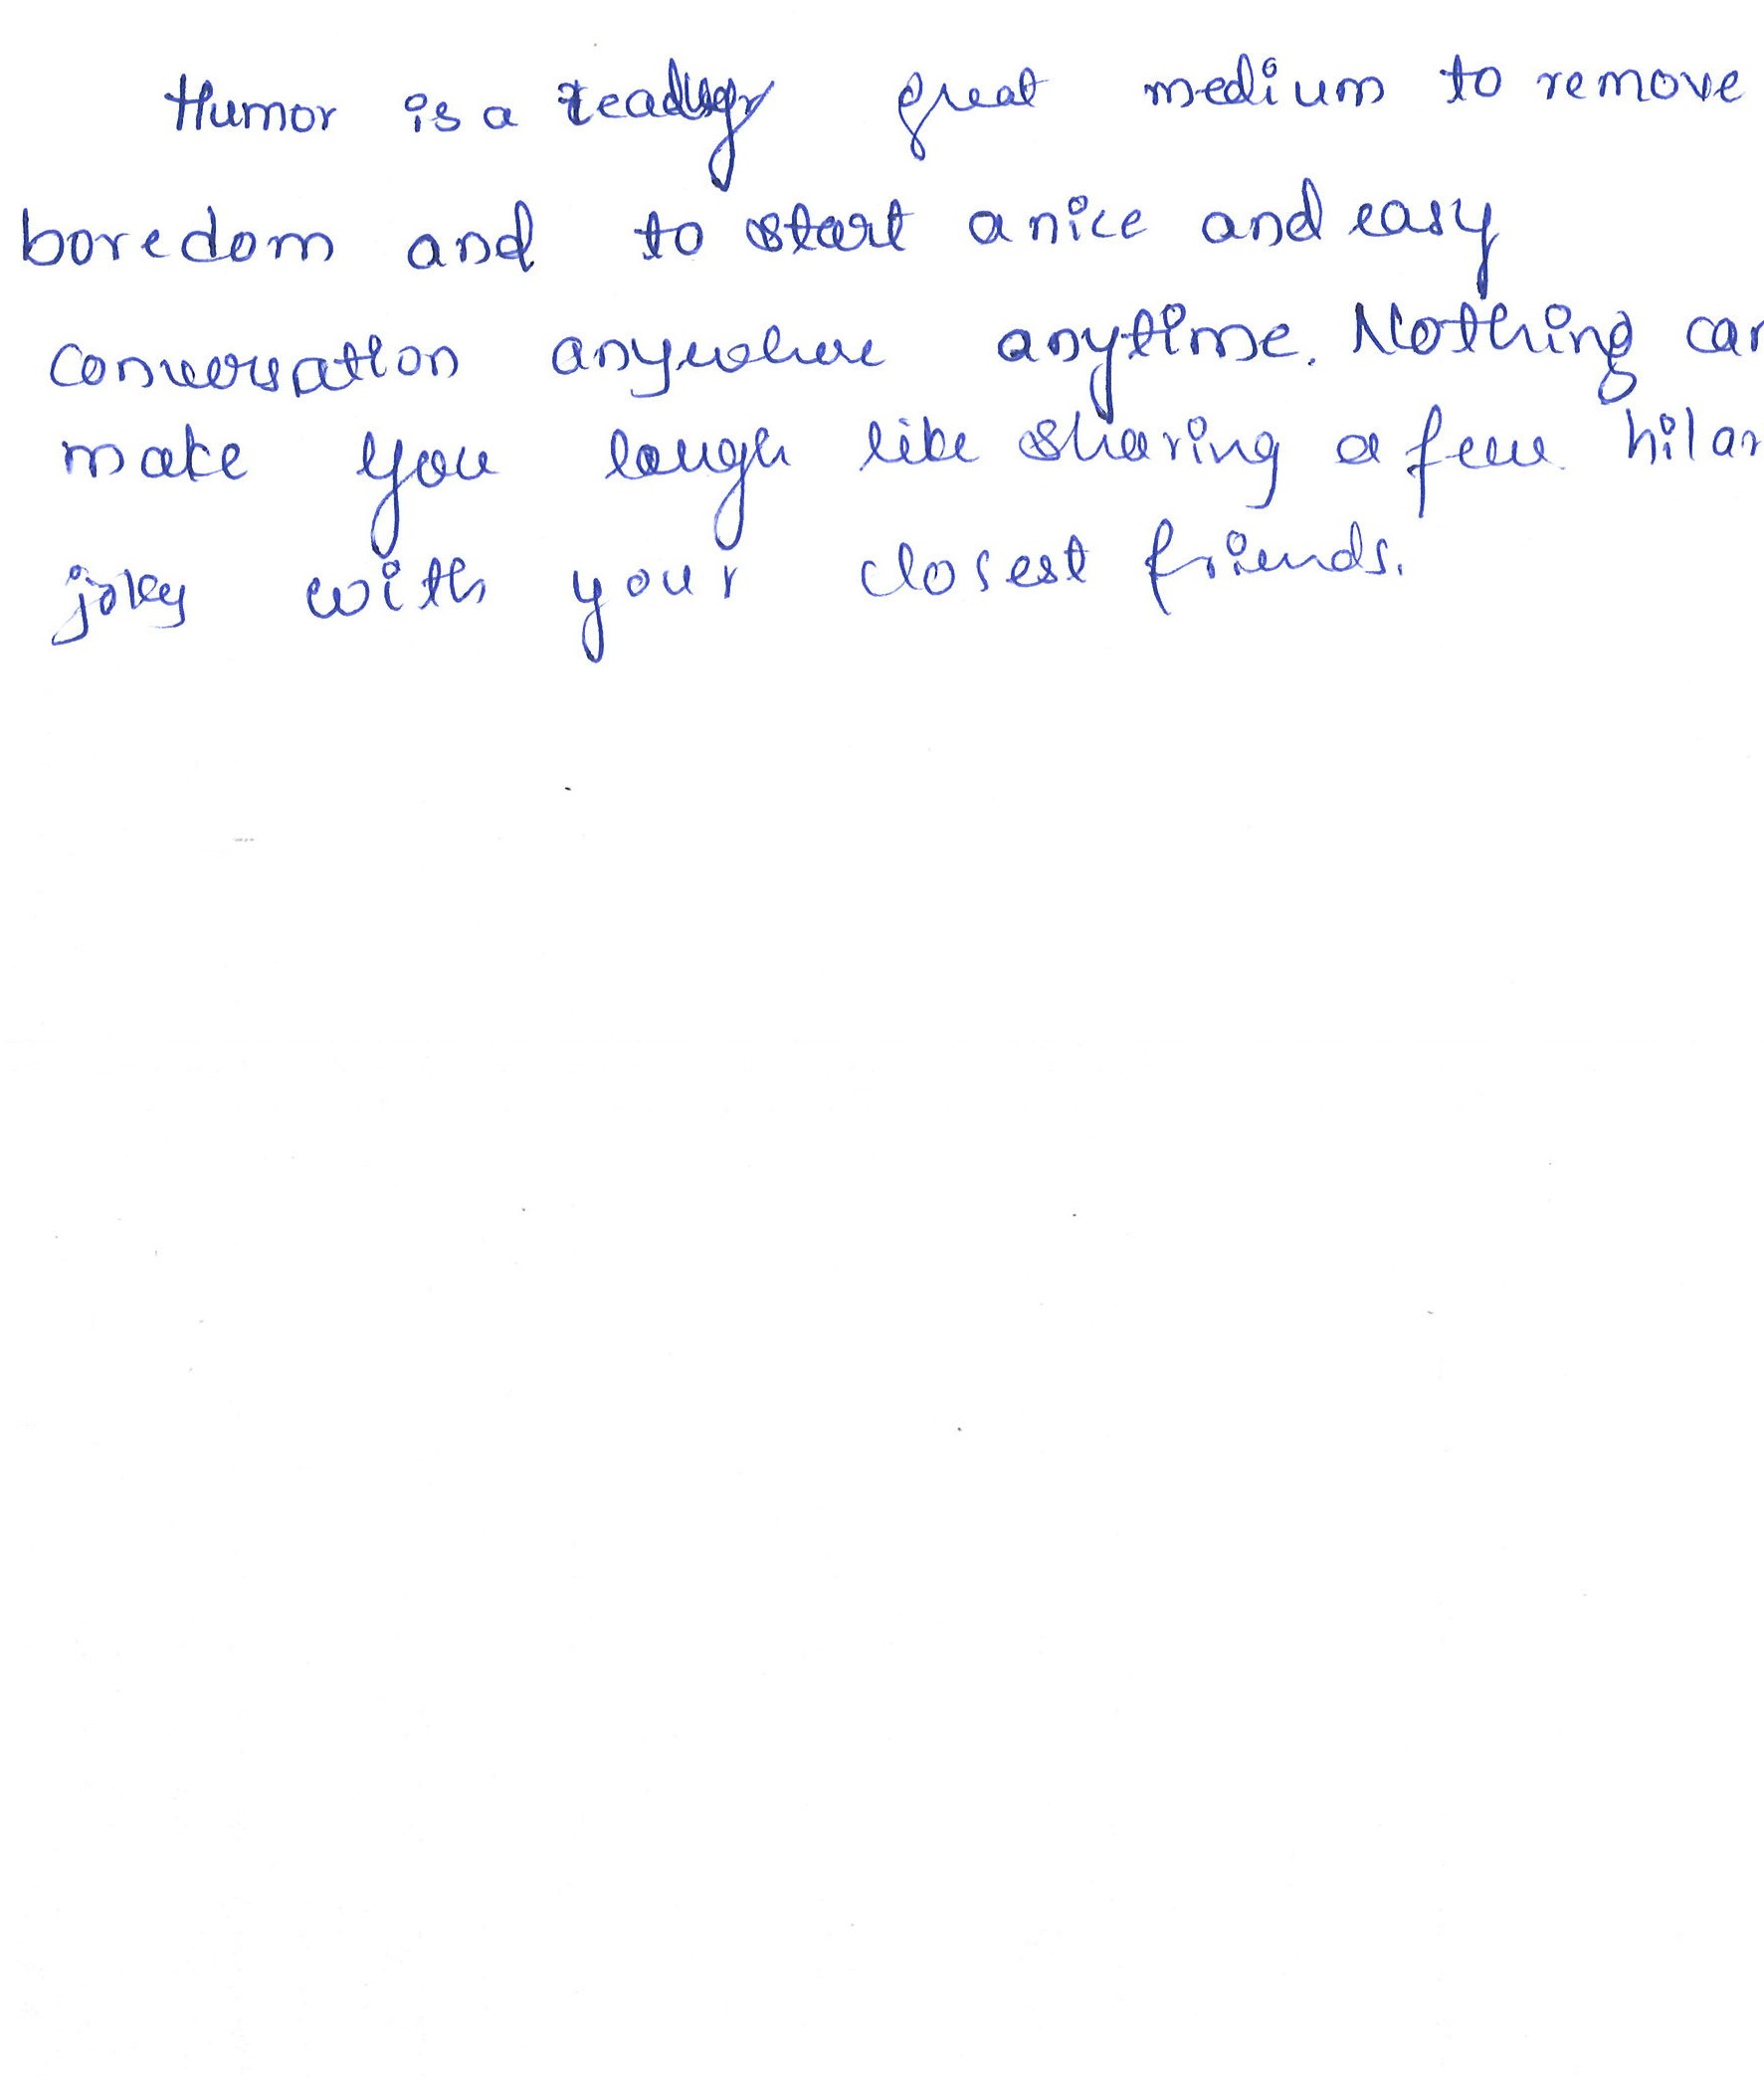 Humor is a really great medium to remove
boredom and to start a nice and easy
conversation anywhere anytime. Nothing can
make you laugh like sharing a few hilar
jokes with your closest friends.